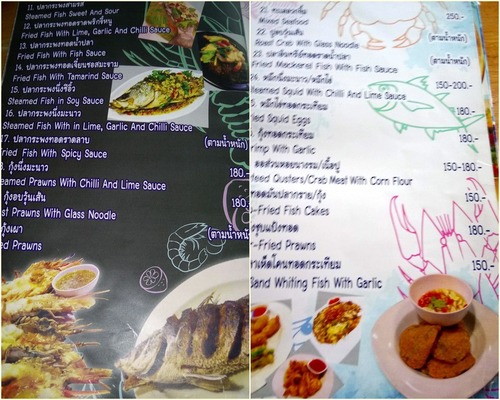 11. ปลากะพงสามรส
Steamed Fish Sweet And Sour
12. ปลากะพงทอดราดพริกขี้หนู
Fried Fish With Lime, Garlic And Chilli Sauce
13. ปลากะพงทอดน้ำปลา
Fried Fish With Fish Sauce
14. ปลากะพงทอดเจี๋ยนซอสมะขาม
Fried Fish With Tamarind Sauce
15. ปลากะพงนึ่งซีอิ๊ว
Steamed Fish in Soy Sauce
16. ปลากะพงนึ่งมะนาว
Steamed Fish With in Lime, Garlic And Chilli Sauce
17. ปลากะพงทอดราดลาบ (ตามน้ำหนัก)
Fried Fish With Spicy Sauce
กุ้งนึ่งมะนาว 180.-
Steamed Prawns With Chilli And Lime Sauce
กุ้งอบวุ้นเส้น 180.-
Prawns With Glass Noodle
กุ้งเผา (ตามน้ำหนัก)
Prawns
21. 250.-
Mixed Seafood
22. ปูอบวุ้นเส้น (ตามน้ำหนัก)
Roast Crab With Glass Noodle
(ตามน้ำหนัก)
Fried Mackerel Fish With Fish Sauce
หมึกนึ่งมะนาว/หมึกไข่ 150-200.-
Squid With Chilli And Lime Sauce
หมึกไข่ทอดกระเทียม 180.-
Squid Eggs
กุ้งทอดกระเทียม 180.-
With Garlic
ออส่วนหอยนางรม/เนื้อปู 150-180.-
Ousters/Crab Meat With Corn Flour
ทอดมันปลากราย/กุ้ง 150.-
Fried Fish Cakes
กุ้งชุบแป้งทอด 180.-
Fried Prawns
ปลาเห็ดโคนทอดกระเทียม 150.-
Sand Whiting Fish With Garlic